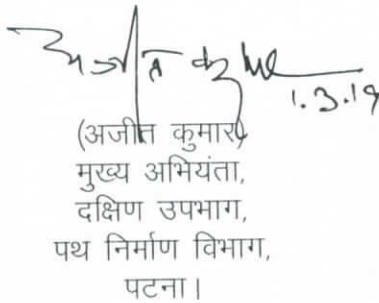 अजीत कुमार
1.3.19
(अजीत कुमार)
मुख्य अभियंता,
दक्षिण उपभाग,
पथ निर्माण विभाग,
पटना।